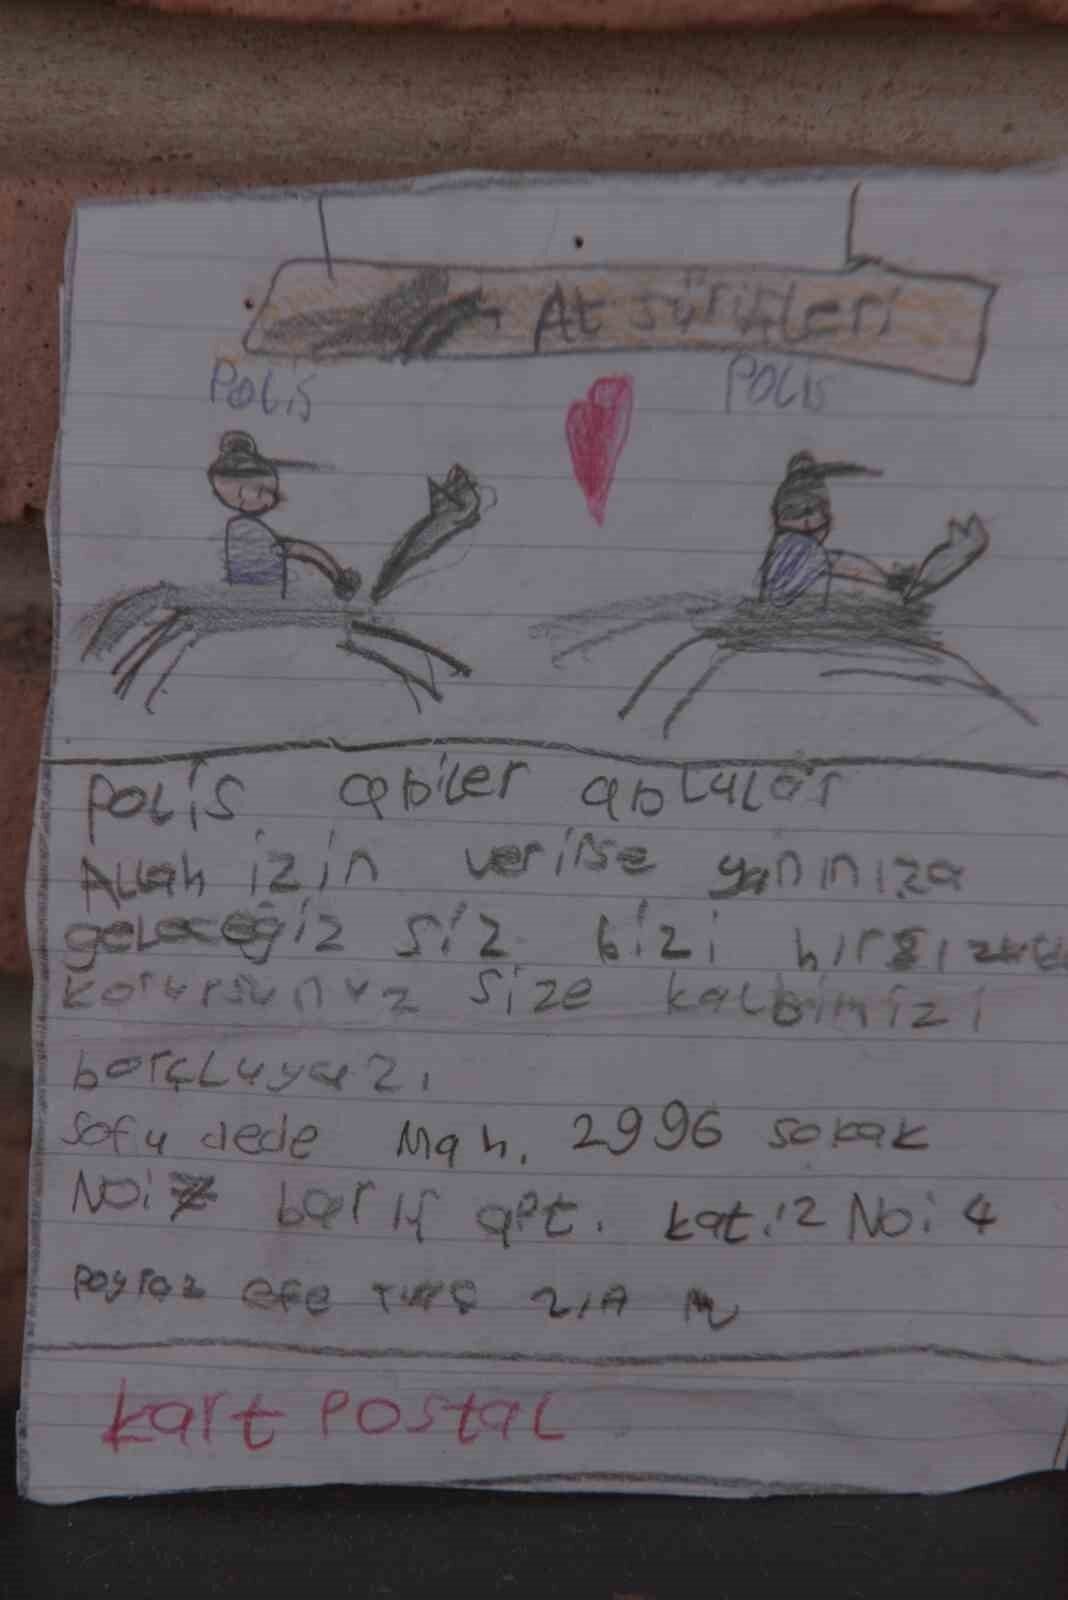 At
Polis Polis
Polis abiler ablalar
Allah izin verirse yanınıza
geleceğiz siz bizi
korursunuz size kalbimizi
borçluyuz.
Sofu dede Mah. 2996 sokak
No: barış apt. kat:2 No:4
Poyraz efe 2/A
kart Postal